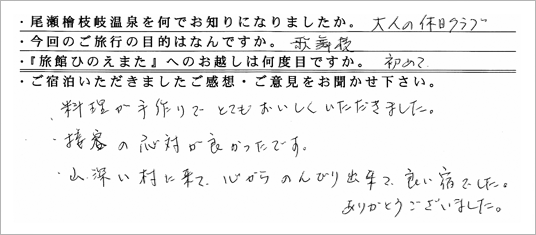 ・尾瀬檜枝岐温泉を何でお知りになりましたか。 大人の休日クラブ
・今回のご旅行の目的はなんですか。 歌舞伎
・『旅館ひのえまた』へのお越しは何度目ですか。 初めて
・ご宿泊いただきましたご感想・ご意見をお聞かせ下さい。
・料理が手作りでとてもおいしくいただきました。
・接客の応対が良かったです。
・山深い村に来て、心からのんびり出来て、良い宿でした。
ありがとうございました。